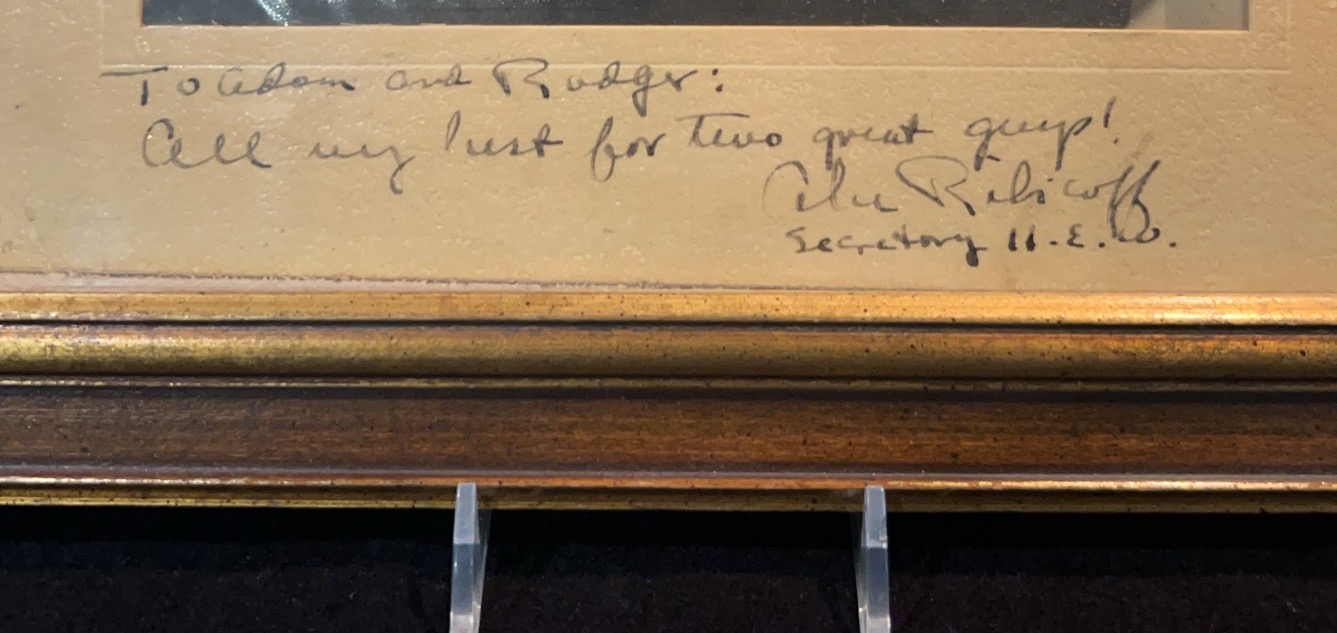 To Adam and Rodger:
All my best for two great guys!
Abe Ribicoff
Secretary H.E.W.